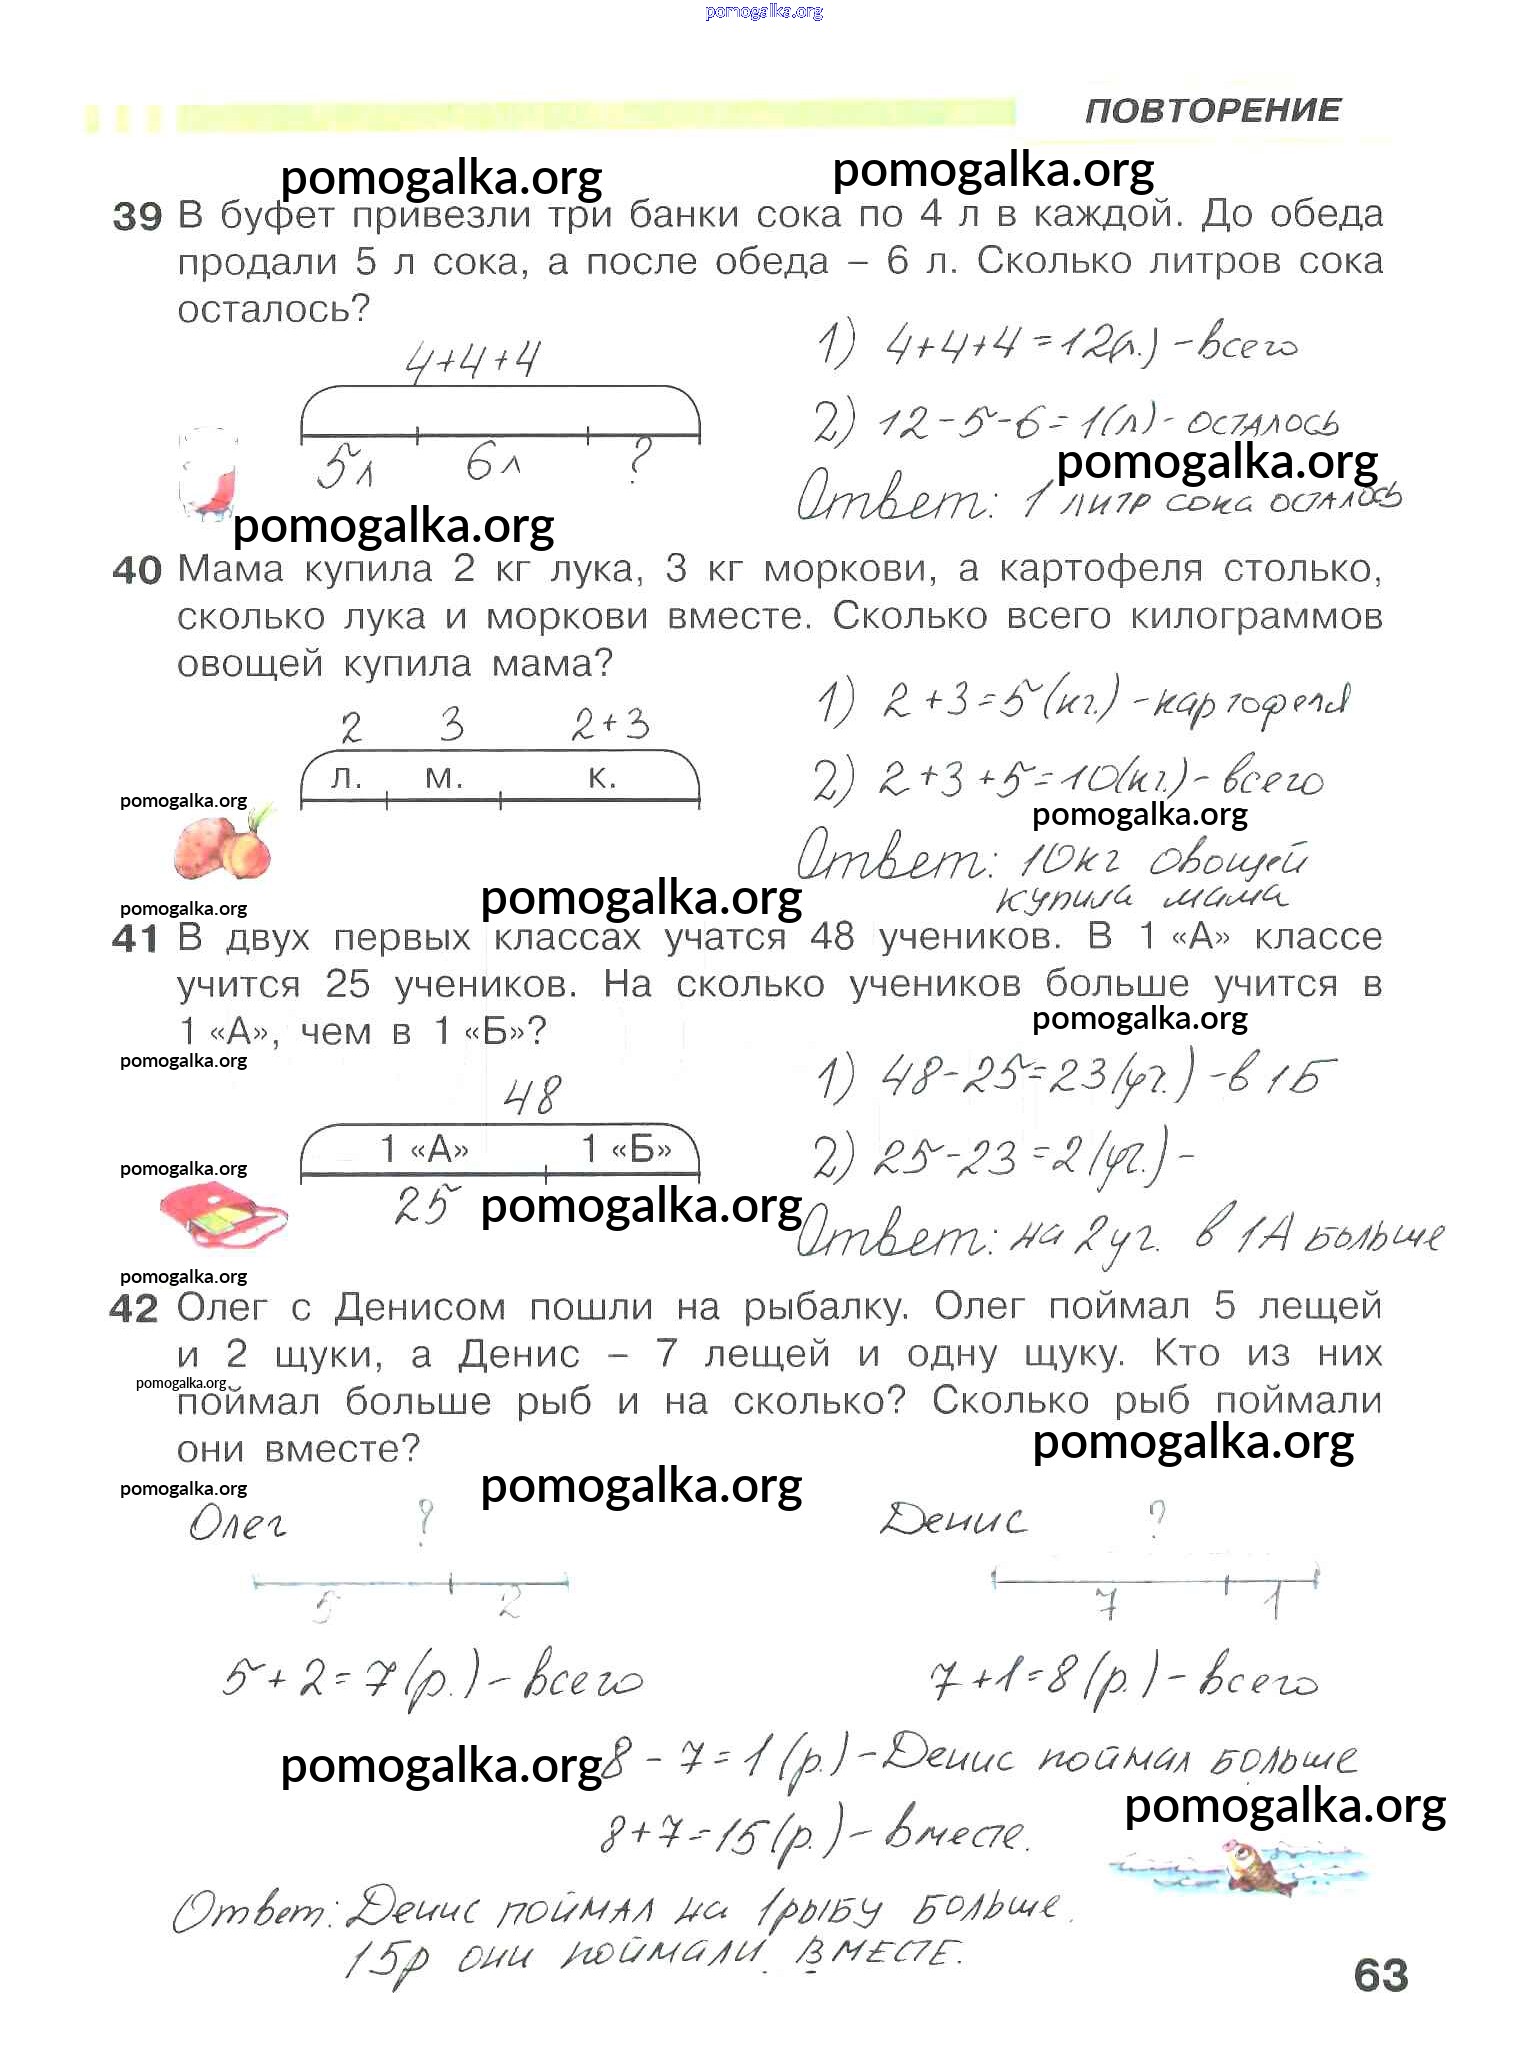 pomogalka.org
ПОВТОРЕНИЕ
pomogalka.org pomogalka.org
39 В буфет привезли три банки сока по 4 л в каждой. До обеда
продали 5 л сока, а после обеда – 6 л. Сколько литров сока
осталось?
4+4+4
5л 6л ?
1) 4+4+4=12(л.) - всего
2) 12-5-6=1(л) - осталось
pomogalka.org
Ответ: 1 литр сока осталось
pomogalka.org
40 Мама купила 2 кг лука, 3 кг моркови, а картофеля столько,
сколько лука и моркови вместе. Сколько всего килограммов
овощей купила мама?
2 3 2+3
л. м. к.
1) 2+3=5(кг.) - картофеля
2) 2+3+5=10(кг.) - всего
pomogalka.org
pomogalka.org
Ответ: 10кг овощей
купила мама
pomogalka.org
pomogalka.org
41 В двух первых классах учатся 48 учеников. В 1 «А» классе
учится 25 учеников. На сколько учеников больше учится в
1 «А», чем в 1 «Б»?
pomogalka.org
pomogalka.org
48
1 «А» 1 «Б»
25
1) 48-25=23(уч.) - в 1Б
2) 25-23=2(уч.) -
pomogalka.org
pomogalka.org
Ответ: на 2 уч. в 1А больше
pomogalka.org
42 Олег с Денисом пошли на рыбалку. Олег поймал 5 лещей
и 2 щуки, а Денис – 7 лещей и одну щуку. Кто из них
pomogalka.org
поймал больше рыб и на сколько? Сколько рыб поймали
они вместе?
pomogalka.org
pomogalka.org
pomogalka.org
Олег ? Денис ?
5 2 7 1
5+2=7(р.) - всего 7+1=8(р.) - всего
pomogalka.org
8-7=1(р.) - Денис поймал больше
pomogalka.org
8+7=15(р.) - вместе.
Ответ: Денис поймал на 1 рыбу больше.
15р они поймали вместе.
63